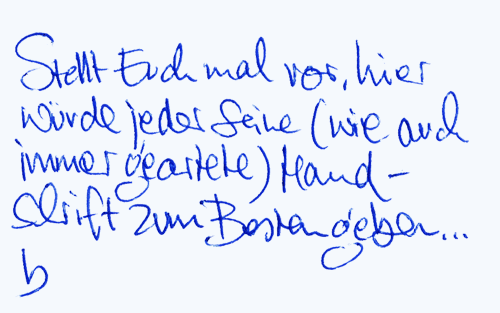 Stellt Euch mal vor, hier
würde jeder seine (wie auch
immer geartete) Hand-
schrift zum Besten geben...
b